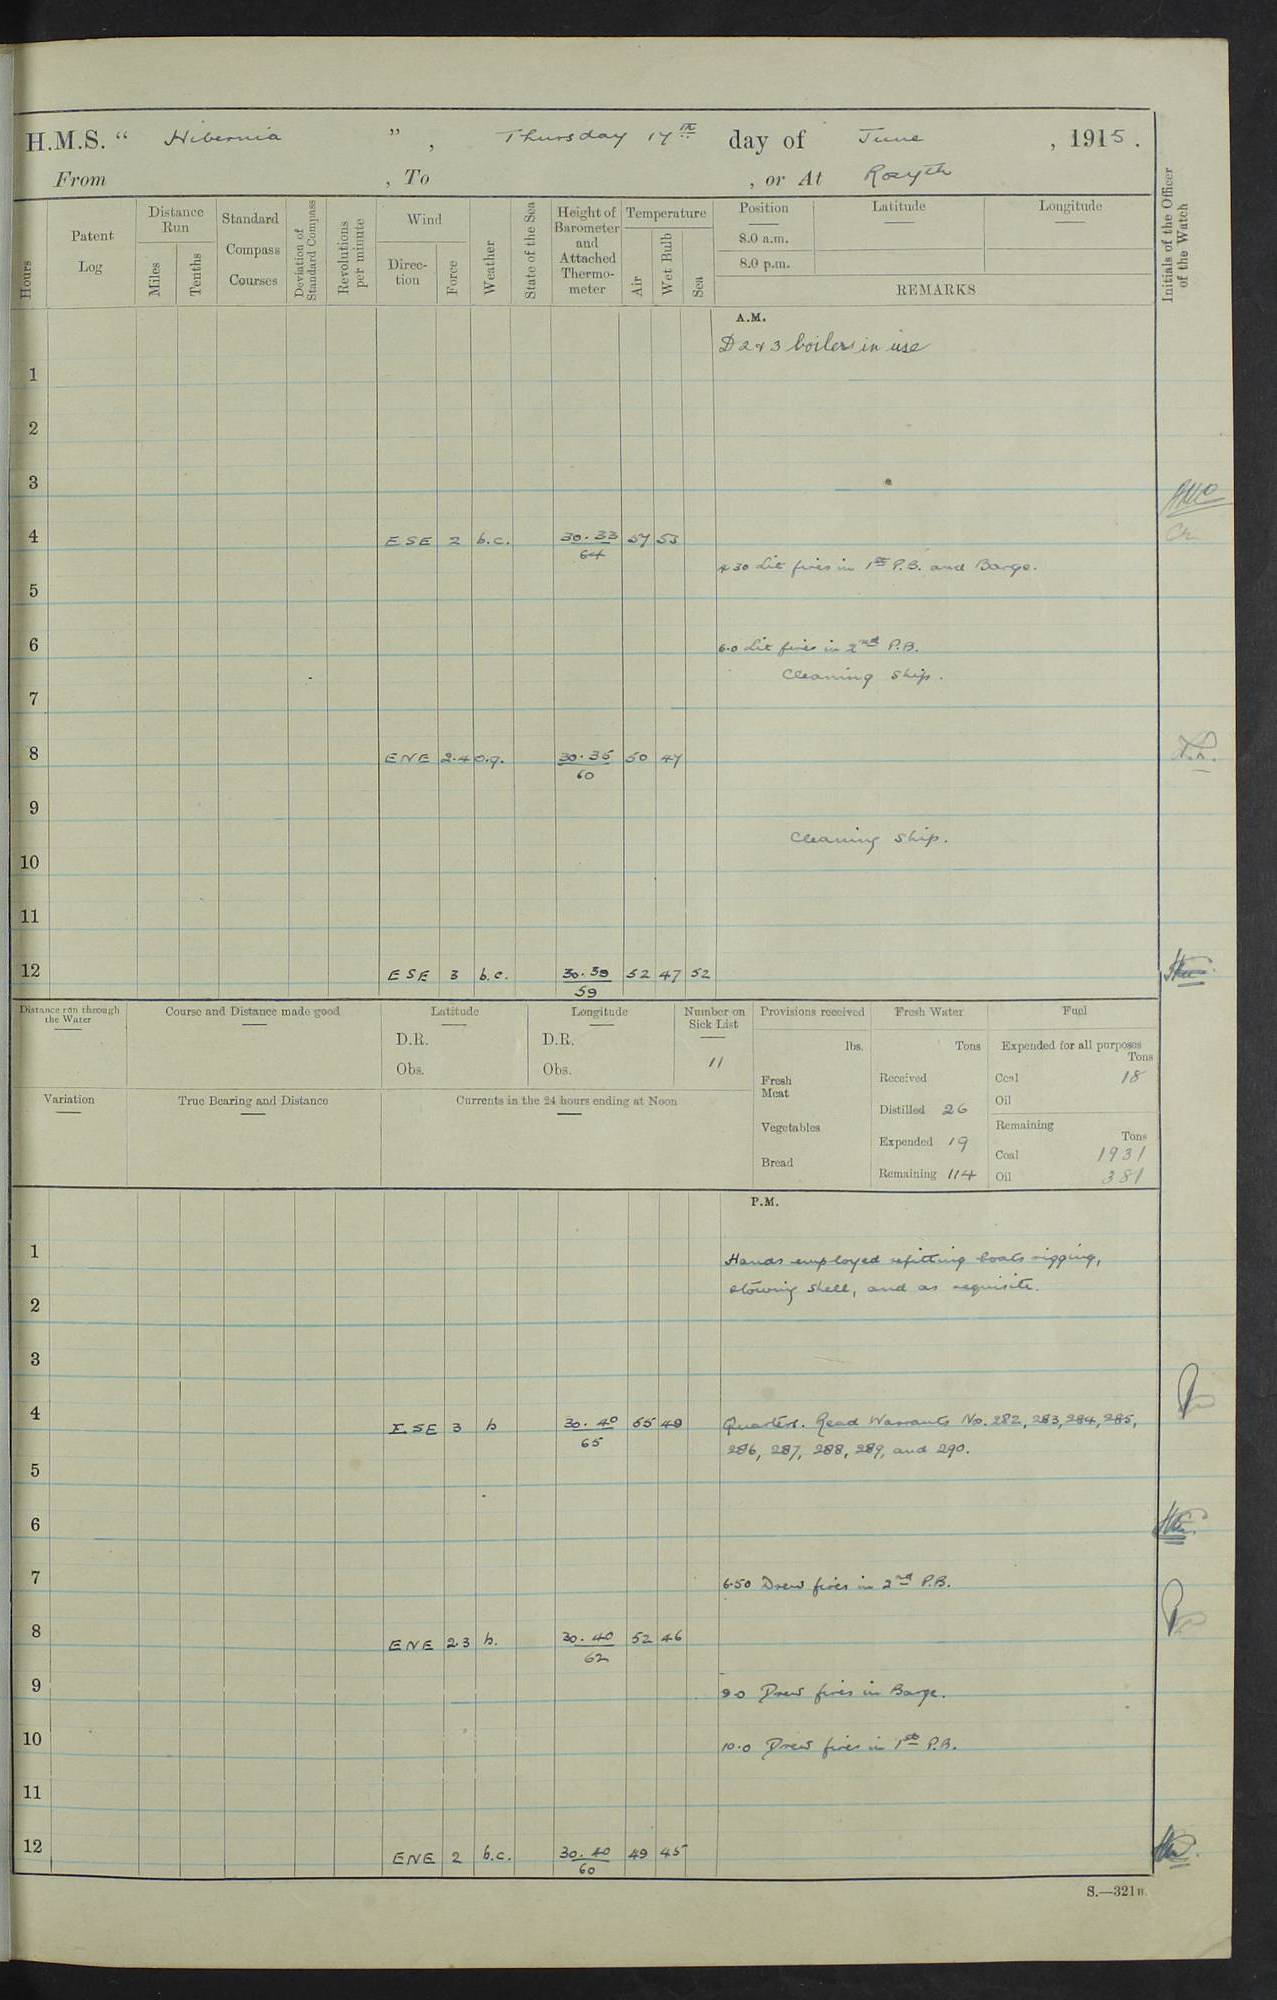 H.M.S. “ Hibernia ” , Thursday 17th day of June , 1915.
From , To , or At Rosyth
Hours
Patent Log
Distance Run
Miles
Tenths
Standard Compass Courses
Deviation of Standard Compass
Revolutions per minute
Wind
Direction
Force
Weather
State of the Sea
Height of Barometer and Attached Thermometer
Temperature
Air
Wet Bulb
Sea
Position
8.0 a.m.
8.0 p.m.
Latitude
Longitude
REMARKS
Initials of the Officer of the Watch
A.M.
D 2 & 3 boilers in use
1
2
3
4 ESE 2 b.c. 30.33 57 53
64
4 30 Lit fires in 1st P.B. and Barge.
5
6
6.0 Lit fires in 2nd P.B.
Cleaning ship.
7
8 ENE 2.4 o.q. 30.35 50 47
60
9
Cleaning ship.
10
11
12 ESE 3 b.c. 30.39 52 47 52
59
Distance run through the Water
Course and Distance made good
Latitude
D.R.
Obs.
Longitude
D.R.
Obs.
Number on Sick List
11
Provisions received
lbs.
Fresh Meat
Vegetables
Bread
Fresh Water
Tons
Received
Distilled 26
Expended 19
Remaining 114
Fuel
Expended for all purposes
Tons
Coal 18
Oil
Remaining
Tons
Coal 1931
Oil 381
Variation
True Bearing and Distance
Currents in the 24 hours ending at Noon
P.M.
1
Hands employed refitting boats rigging,
stowing shell, and as requisite.
2
3
4 ESE 3 b 30.40 55 49
65
Quarters. Read Warrants No. 282, 283, 284, 285,
286, 287, 288, 289, and 290.
5
6
7
6.50 Drew fires in 2nd P.B.
8 ENE 2.3 b. 30.40 52 46
62
9
9.0 Drew fires in Barge.
10
10.0 Drew fires in 1st P.B.
11
12 ENE 2 b.c. 30.40 49 45
60
S.—321B.